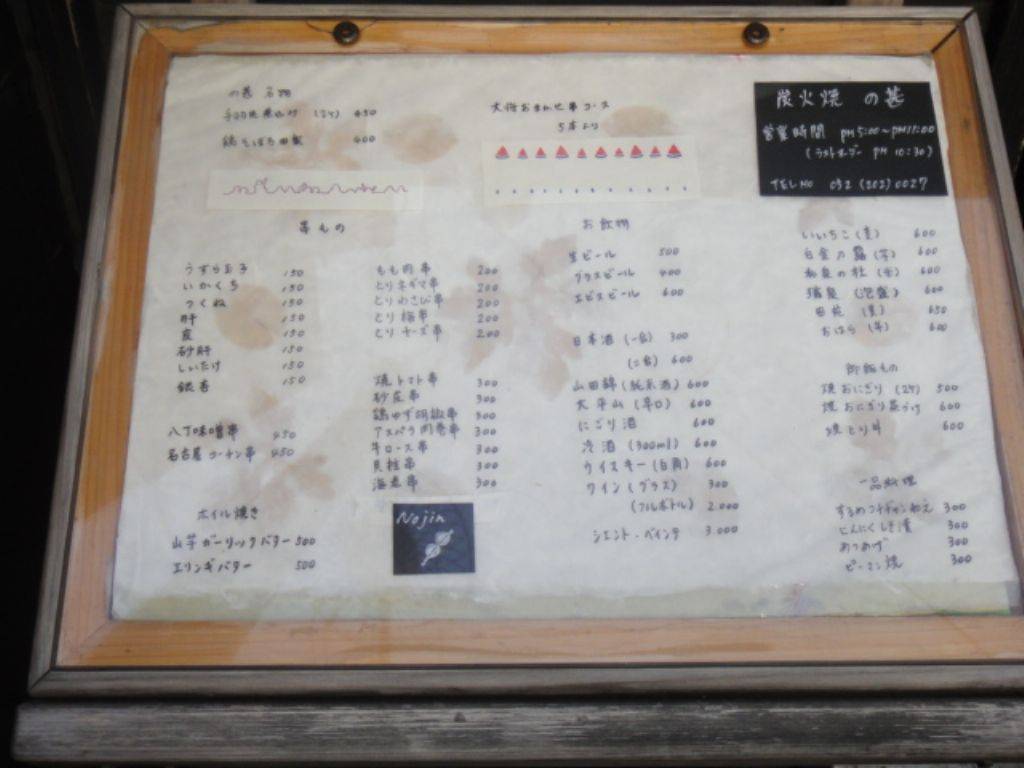 の甚 名物
手羽先
450
鶏そぼろ
400
大将おまかせ串コース
5本より
炭火焼 の甚
営業時間 PM 5:00~PM 11:00
(ラストオーダー PM 10:30)
TEL NO 052 (202) 0027
串もの
うずら玉子 150
いかくち 150
つくね 150
肝 150
皮 150
砂肝 150
しいたけ 150
銀杏 150
八丁味噌串 450
名古屋コーチン串 450
ホイル焼き
山芋ガーリックバター 500
エリンギバター 500
もも肉串 200
とりネギマ串 200
とりわさび串 200
とり梅串 200
とりチーズ串 200
焼トマト串 300
砂皮串 300
鶏ゆず胡椒串 300
アスパラ肉巻串 300
牛ロース串 300
貝柱串 300
海老串 300
Nojin
お飲物
生ビール 500
グラスビール 400
エビスビール 600
日本酒 (一合) 300
(二合) 600
山田錦 (純米酒) 600
太平山 (辛口) 600
にごり酒 600
冷酒 (300ml) 600
ウイスキー (白角) 600
ワイン (グラス) 300
(フルボトル) 2.000
シエント・ベインテ 3.000
いいちこ (麦) 600
白金乃露 (芋) 600
和泉の杜 (麦) 600
瑞泉 (泡盛) 600
田苑 (麦) 650
おはら (芋) 600
御飯もの
焼おにぎり (2ケ) 500
焼おにぎり茶づけ 600
焼とり丼 600
一品料理
するめコチヂャンわえ 300
にんにくしそ漬 300
あつあげ 300
ピーマン焼 300